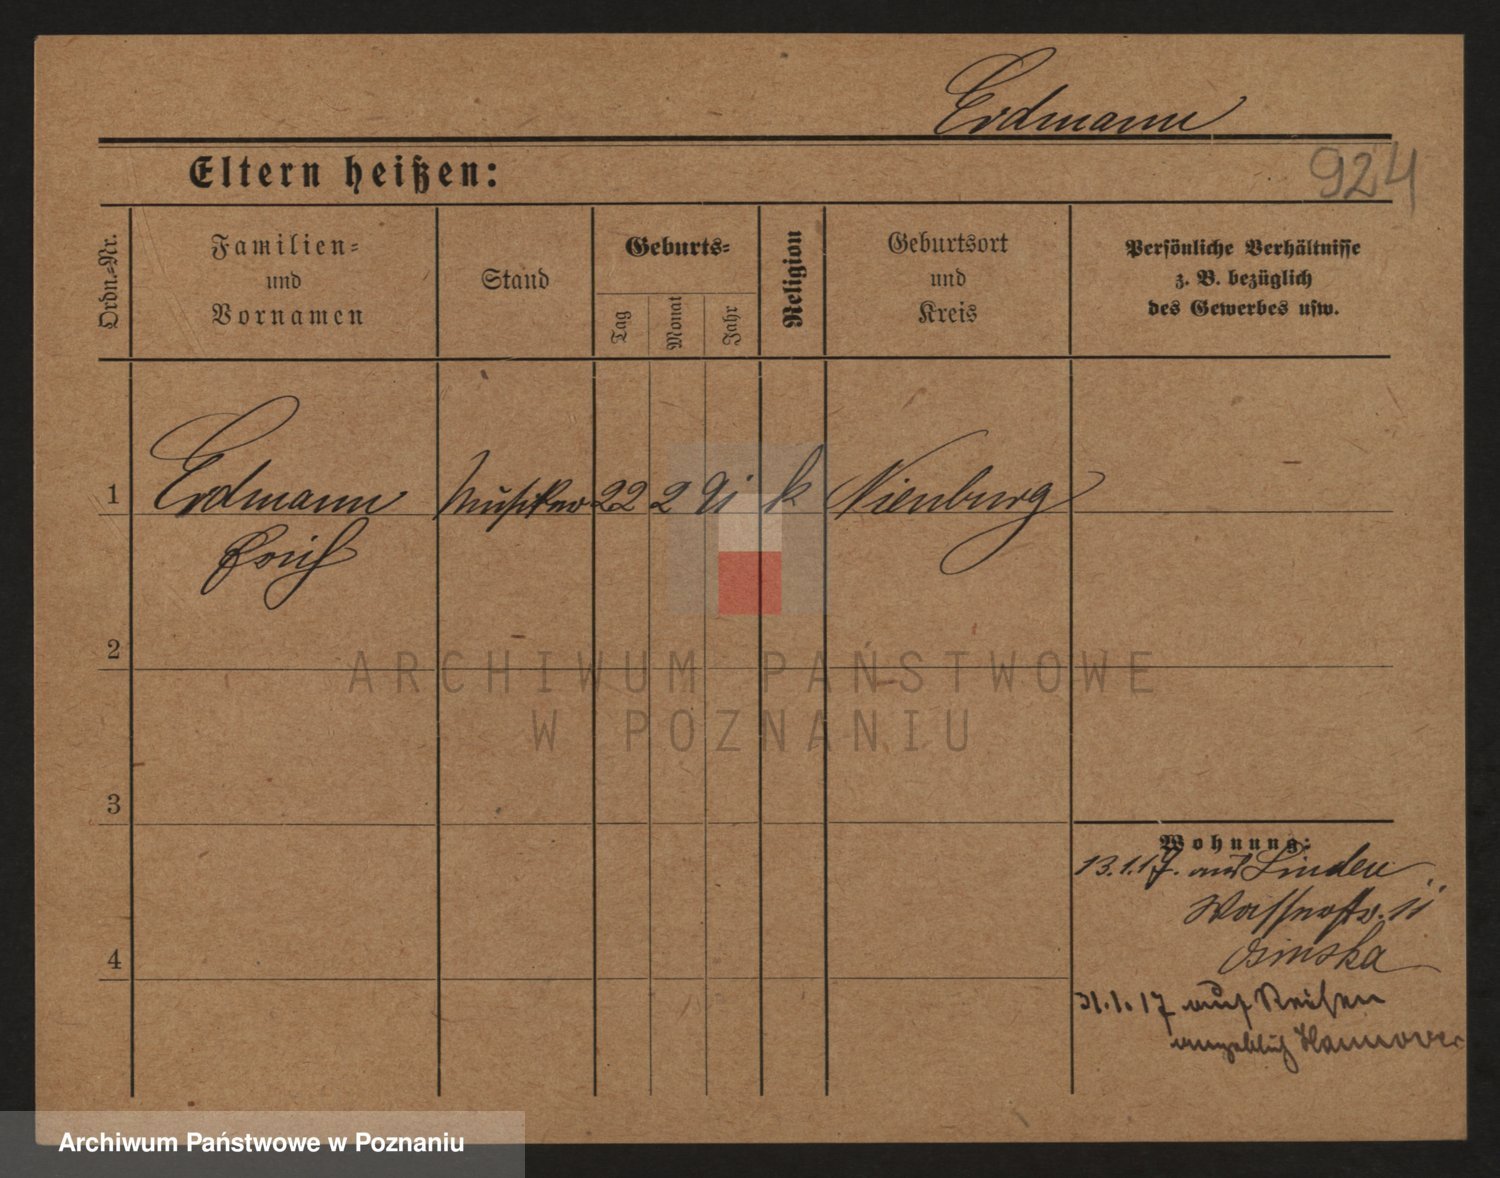 Erdmann
Eltern heißen:
924
Ordn.-Nr.
Familien-
und
Vornamen
Stand
Geburts-
Tag
Monat
Jahr
Religion
Geburtsort
und
Kreis
Persönliche Verhältnisse
z. B. bezüglich
des Gewerbes usw.
1 Erdmann Musiker 22 2 91 k Nienburg
Erich
2
ARCHIWUM PAŃSTWOWE
W POZNANIU
3
Wohnung:
13.1.17. aus Linden
Wasserstr. 11
4
31.1.17 auf Reisen
angeblich Hannover
Archiwum Państwowe w Poznaniu